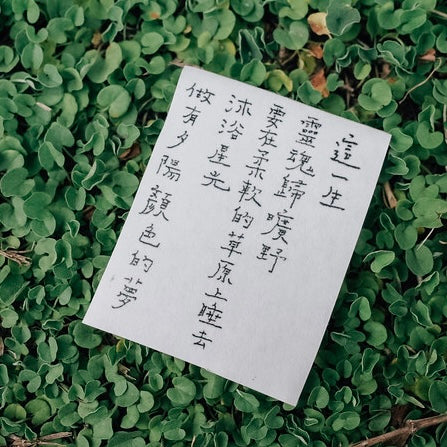 這一生
靈魂歸曠野
要在柔軟的草原上睡去
沐浴星光
做有夕陽顏色的夢